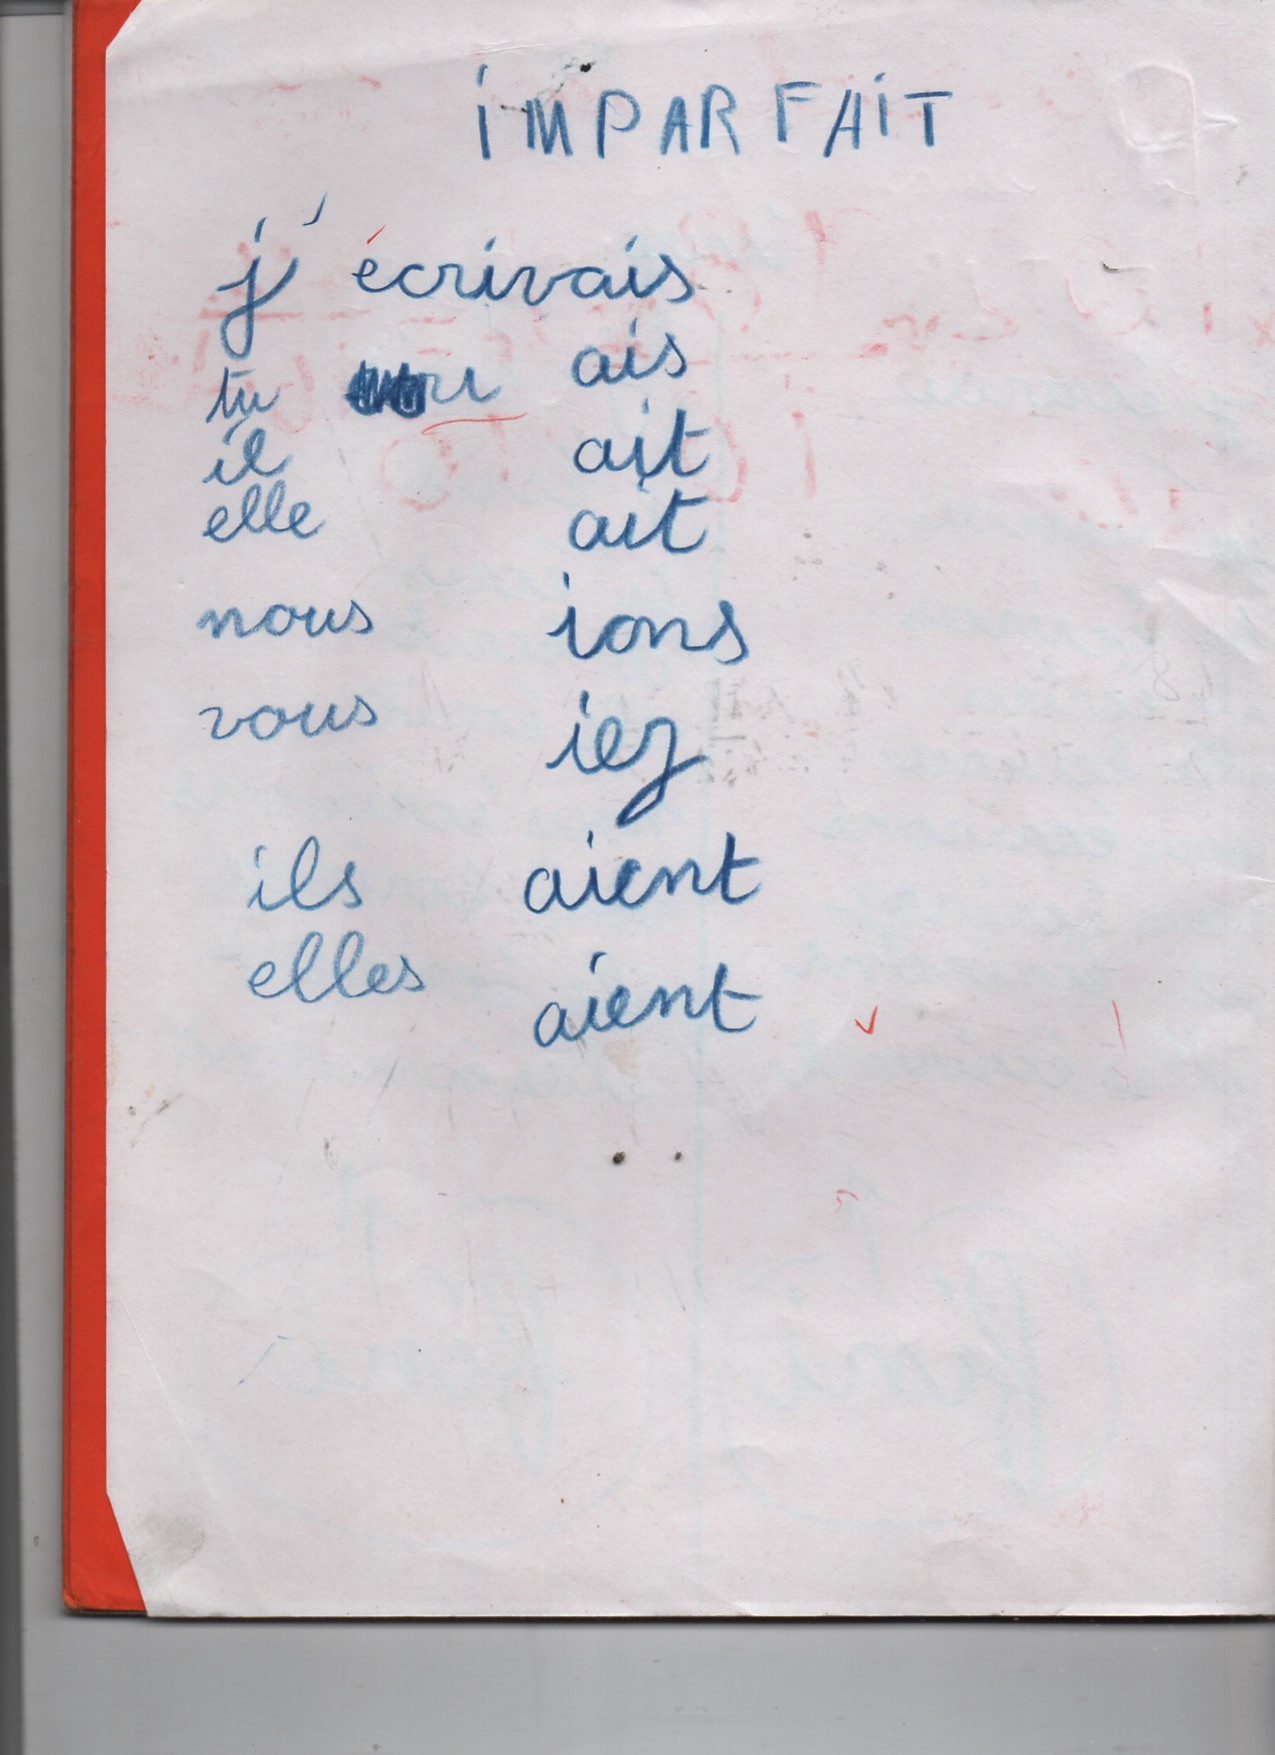 iMPARFAiT
j' écrivais
tu ais
il ait
elle ait
nous ions
vous iez
ils aient
elles aient